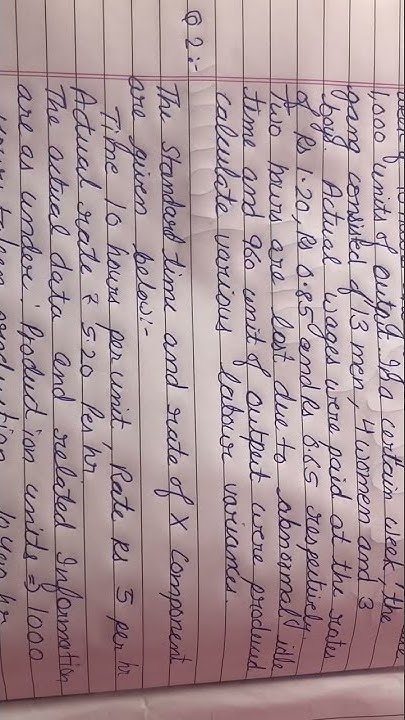 1,000 units of output. In a certain week, the
gang consisted of 13 men, 4 women and 3
boys. Actual wages were paid at the rates
of Rs 1.20, Rs 0.85 and Rs 0.65 respectively.
Two hours are lost due to abnormal idle
time and 960 unit of output were produced
calculate various labour variances.
Q 2:-
The standard time and rate of X Component
are given below:-
Time 10 hours per unit, Rate Rs 5 per hr
Actual rate ₹ 5.20 Per hr.
The actual data and related Information
are as under: Production units ⇒ 1000
hours taken production